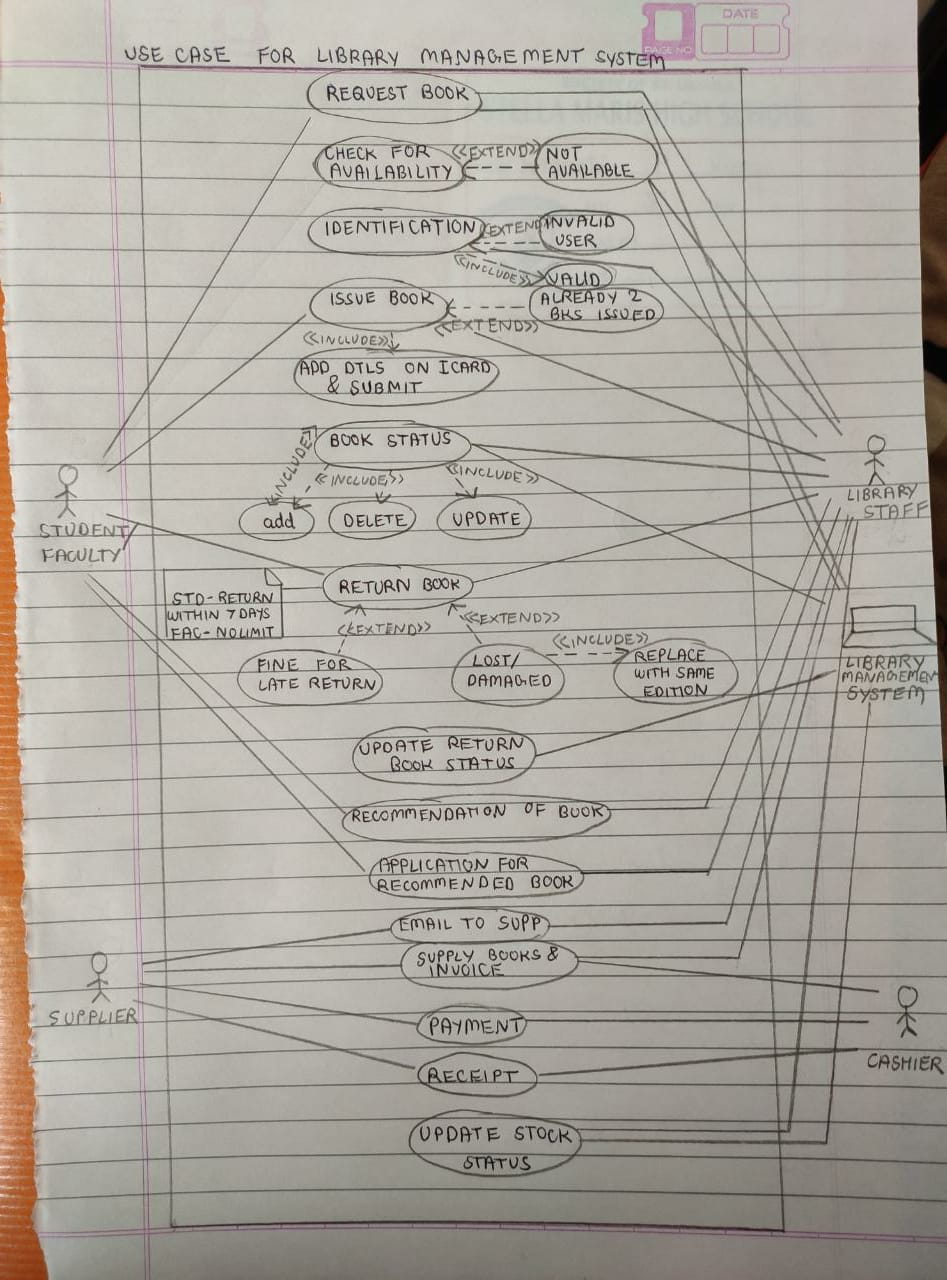 DATE
PAGE NO
USE CASE FOR LIBRARY MANAGEMENT SYSTEM
REQUEST BOOK
CHECK FOR
AVAILABILITY
<<EXTEND>>
NOT
AVAILABLE
IDENTIFICATION
<<EXTEND
INVALID
USER
<<INCLUDE>>
VALID
ISSUE BOOK
ALREADY 2
BKS ISSUED
<<EXTEND>>
<<INCLUDE>>
ADD DTLS ON ICARD
& SUBMIT
BOOK STATUS
<<INCLUDE>>
<<INCLUDE>>
<<INCLUDE>>
add
DELETE
UPDATE
STUDENT/
FACULTY
LIBRARY
STAFF
RETURN BOOK
STD-RETURN
WITHIN 7 DAYS
FAC-NO LIMIT
<<EXTEND>>
<<EXTEND>>
<<INCLUDE>>
FINE FOR
LATE RETURN
LOST/
DAMAGED
REPLACE
WITH SAME
EDITION
LIBRARY
MANAGEMEN
SYSTEM
UPDATE RETURN
BOOK STATUS
RECOMMENDATION OF BOOK
APPLICATION FOR
RECOMMENDED BOOK
EMAIL TO SUPP
SUPPLY BOOKS &
INVOICE
SUPPLIER
PAYMENT
CASHIER
RECEIPT
UPDATE STOCK
STATUS